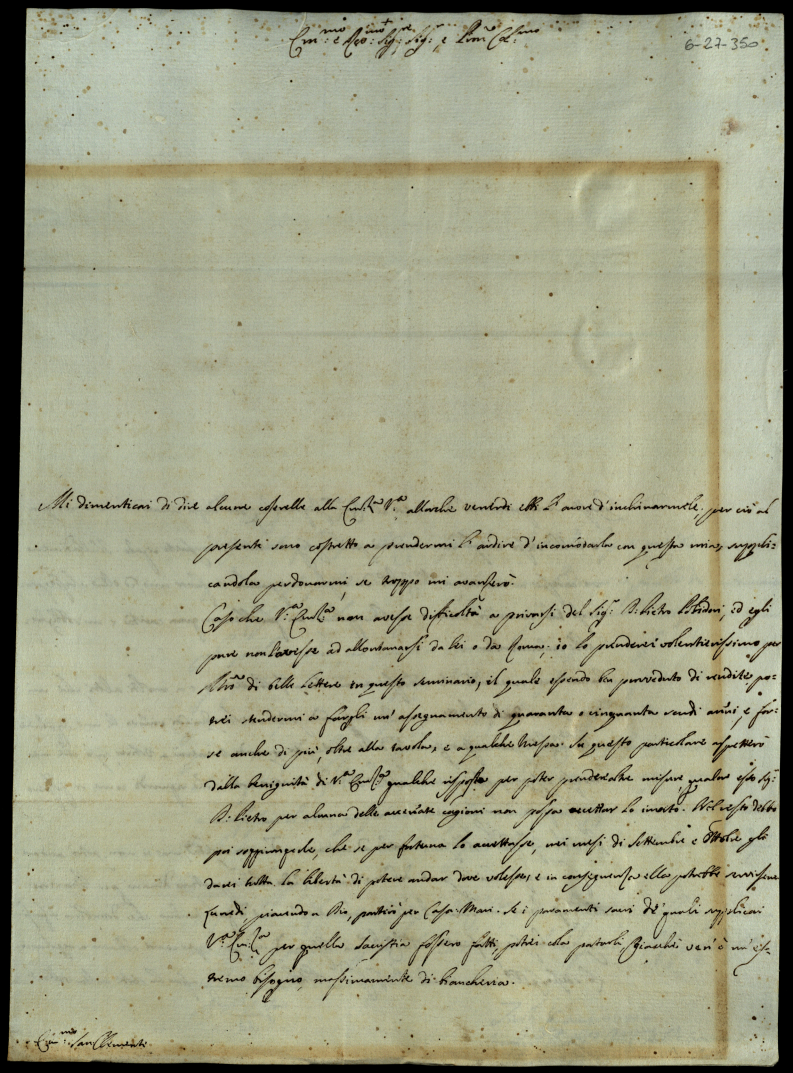 Em:mo e Rev:mo Sig:re Sig:re e Pron Col:mo
6-27-350
Mi dimenticai di dire alcune coserelle alla Em:za V:a allorché venerdì ebbi l'onore d'inchinarmele: per ciò al
presente sono costretto a prendermi l'ardire d'incomodarla con questa mia, suppli-
candola perdonarmi, se troppo mi avanserò.
Caso che V:a Em:za non avesse difficoltà a privarsi del Sig:r D: Pietro, ed egli
pure non l'avesse ad allontanarsi da lei o da Roma, io lo prenderei volentierissimo per
Mro di belle lettere in questo seminario, il quale essendo ben proveduto di rendite po-
trei stendermi a fargli un'assegnamento di quaranta o cinquanta scudi annui, e for-
se anche di più, oltre alla tavola, e a qualche messa. Su questo particolare aspetterò
dalla benignità di V:a Em:za qualche risposta per poter prendere altre misure, qualor esso Sig:
D: Pietro per alcuna delle accennate cagioni non possa accettar lo invito. Nel resto debbo
poi soggiungerle, che se per fortuna lo accettasse, nei mesi di Settembre e Ottobre gli
darei tutta la libertà di potere andar dove volesse, e in conseguenza ella potrebbe servirsene
Lunedì piacendo a Dio, partirò per Casa-Mari. Se i paramenti sacri de' quali supplicai
V:a Em:za per quella sacristia fossero fatti, potrei colà portarli. Giacché ven'è un'es-
tremo bisogno, massimamente di biancheria.
Em:mo San Clemente